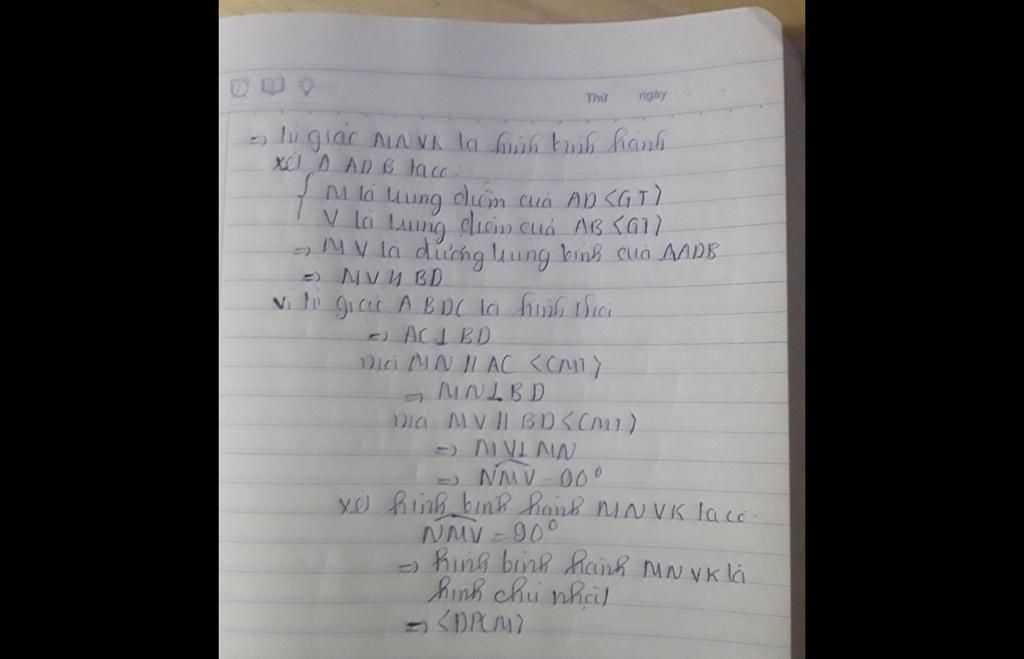 Thứ ngày
=> tứ giác MNVK là hình bình hành
xét Δ ADB ta có:
M là trung điểm của AD <GT>
V là trung điểm của AB <GT>
=> MV là đường trung bình của ΔADB
=> MV // BD
Vì tứ giác ABDC là hình thoi
=> AC ⊥ BD
mà MN // AC <CMT>
=> MN ⊥ BD
mà MV // BD <CMT>
=> MV ⊥ MN
=> NMV = 90°
xét hình bình hành MNVK ta có:
NMV = 90°
=> hình bình hành MNVK là
hình chữ nhật
=> <DPCM>